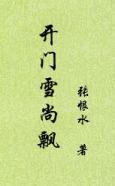 开门雪尚飘
张恨水 著